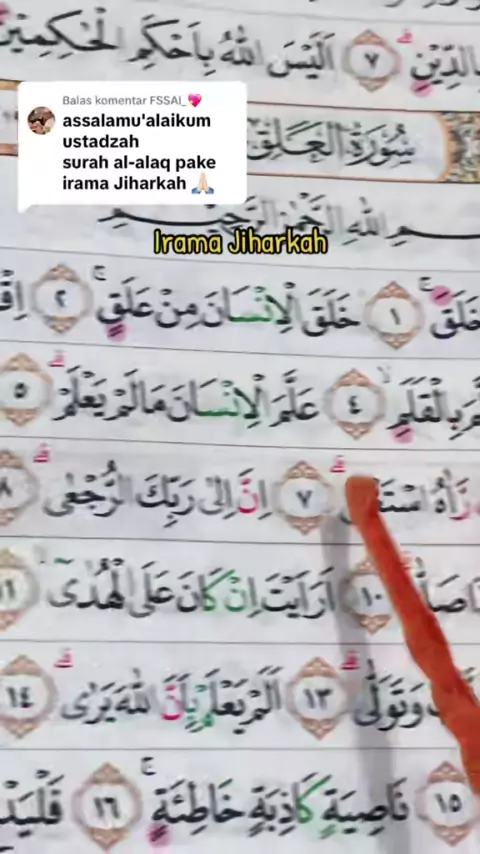 بِالدِّيْنِ ۝٧ اَلَيْسَ اللّٰهُ بِاَحْكَمِ الْحٰكِمِيْنَ
Balas komentar FSSAI_💖
assalamu'alaikum
ustadzah
surah al-alaq pake
irama Jiharkah 🙏🏻
سُوْرَةُ الْعَلَقِ
بِسْمِ اللّٰهِ الرَّحْمٰنِ الرَّحِيْمِ
Irama Jiharkah
خَلَقَ ۝١ خَلَقَ الْاِنْسَانَ مِنْ عَلَقٍ ۝٢
بِالْقَلَمِ ۝٤ عَلَّمَ الْاِنْسَانَ مَا لَمْ يَعْلَمْ ۝٥
رَّاٰهُ ۝٧ اِنَّ اِلٰى رَبِّكَ الرُّجْعٰى ۝٨
۝١٠ اَرَاَيْتَ اِنْ كَانَ عَلَى الْهُدٰىٓ ۝١١
وَتَوَلّٰى ۝١٣ اَلَمْ يَعْلَمْ بِاَنَّ اللّٰهَ يَرٰى ۝١٤
۝١٥ نَاصِيَةٍ كَاذِبَةٍ خَاطِئَةٍ ۝١٦